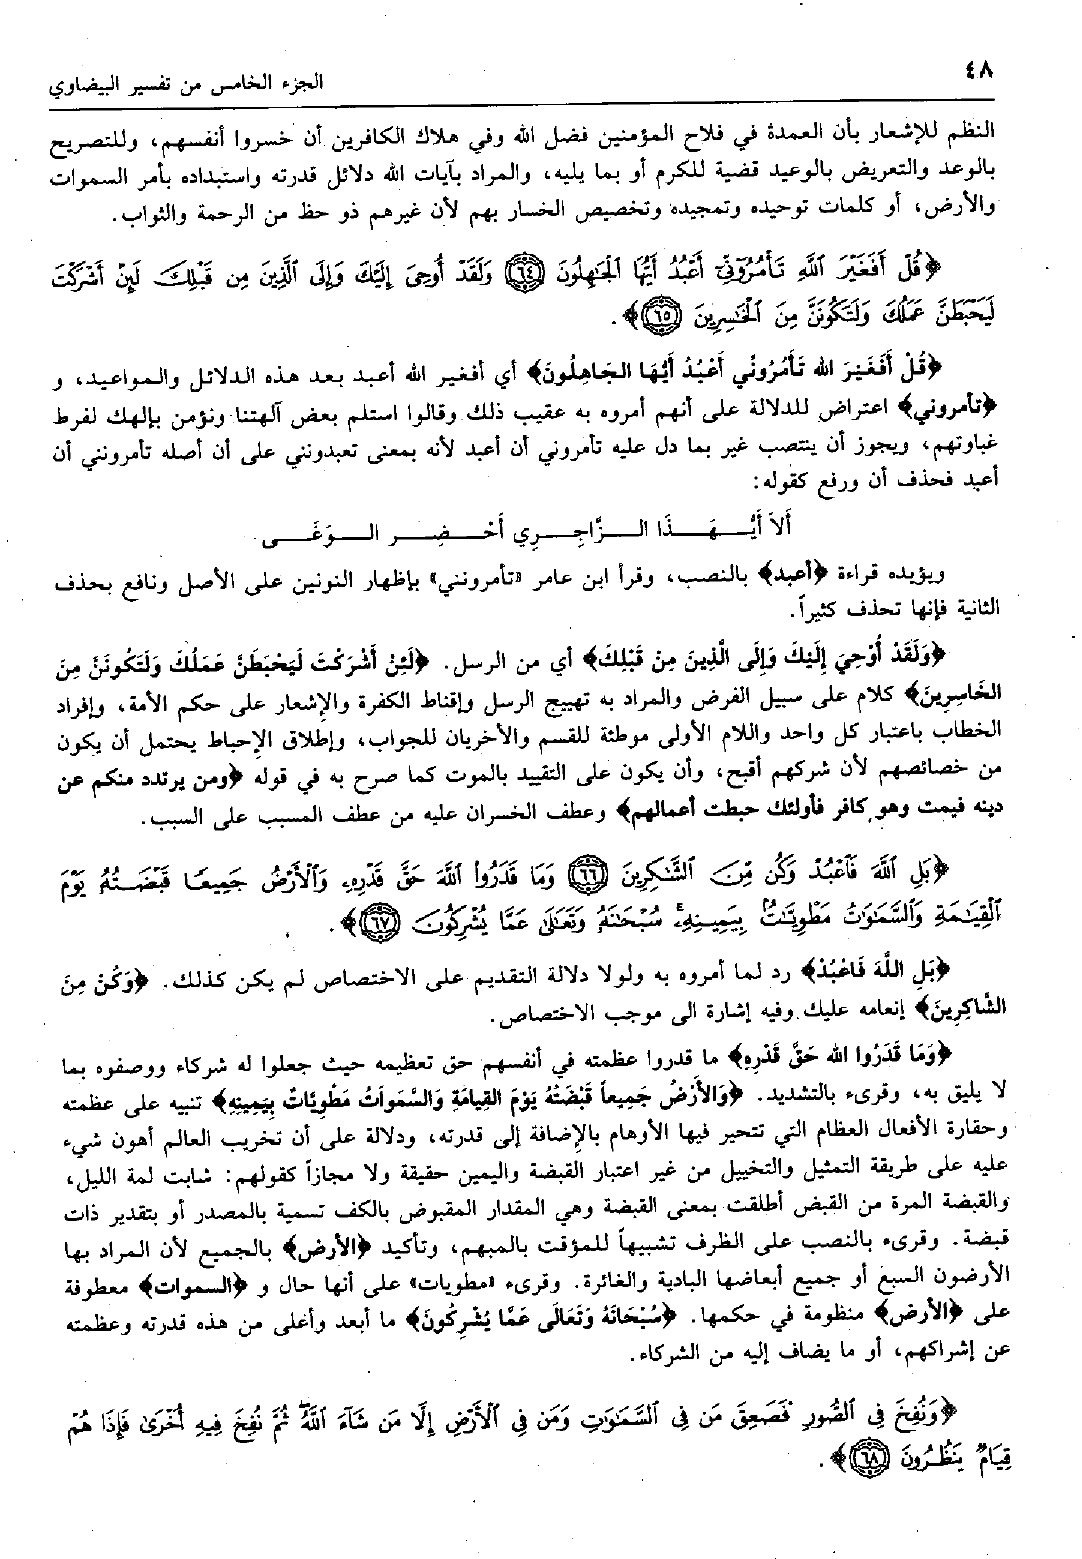 ٤٨
الجزء الخامس من تفسير البيضاوي
النظم للإشعار بأن العمدة في فلاح المؤمنين فضل الله وفي هلاك الكافرين أن خسروا أنفسهم، وللتصريح
بالوعد والتعريض بالوعيد قضية للكرم أو بما يليه، والمراد بآيات الله دلائل قدرته واستبداده بأمر السموات
والأرض، أو كلمات توحيده وتمجيده وتخصيص الخسار بهم لأن غيرهم ذو حظ من الرحمة والثواب.
﴿قُلْ أَفَغَيْرَ ٱللَّهِ تَأْمُرُوٓنِّيٓ أَعْبُدُ أَيُّهَا ٱلْجَٰهِلُونَ ﴿٦٤﴾ وَلَقَدْ أُوحِىَ إِلَيْكَ وَإِلَى ٱلَّذِينَ مِن قَبْلِكَ لَئِنْ أَشْرَكْتَ
لَيَحْبَطَنَّ عَمَلُكَ وَلَتَكُونَنَّ مِنَ ٱلْخَٰسِرِينَ ﴿٦٥﴾﴾.
﴿قُلْ أَفَغَيْرَ الله تَأْمُرُونِّي أَعْبُدُ أَيُّهَا الجَاهِلُونَ﴾ أي أفغير الله أعبد بعد هذه الدلائل والمواعيد، و
﴿تأمروني﴾ اعتراض للدلالة على أنهم أمروه به عقيب ذلك وقالوا استلم بعض آلهتنا ونؤمن بإلهك لفرط
غباوتهم، ويجوز أن ينتصب غير بما دل عليه تأمروني أن أعبد لأنه بمعنى تعبدونني على أن أصله تأمرونني أن
أعبد فحذف أن ورفع كقوله:
أَلاَ أَيُّـهَـذَا الـزَّاجِـرِي أَحْـضِـر الـوَغَـى
ويؤيده قراءة ﴿أعبد﴾ بالنصب، وقرأ ابن عامر «تأمرونني» بإظهار النونين على الأصل ونافع بحذف
الثانية فإنها تحذف كثيراً.
﴿وَلَقَدْ أُوْحِيَ إِلَيْكَ وَإِلَى الَّذِينَ مِنْ قَبْلِكَ﴾ أي من الرسل. ﴿لَئِنْ أَشْرَكْتَ لَيَحْبَطَنَّ عَمَلُكَ وَلَتَكُونَنَّ مِنَ
الخَاسِرِينَ﴾ كلام على سبيل الفرض والمراد به تهييج الرسل وإقناط الكفرة والإشعار على حكم الأمة، وإفراد
الخطاب باعتبار كل واحد واللام الأولى موطئة للقسم والأخريان للجواب، وإطلاق الإحباط يحتمل أن يكون
من خصائصهم لأن شركهم أقبح، وأن يكون على التقييد بالموت كما صرح به في قوله ﴿ومن يرتدد منكم عن
دينه فيمت وهو كافر فأولئك حبطت أعمالهم﴾ وعطف الخسران عليه من عطف المسبب على السبب.
﴿بَلِ ٱللَّهَ فَٱعْبُدْ وَكُن مِّنَ ٱلشَّٰكِرِينَ ﴿٦٦﴾ وَمَا قَدَرُوا۟ ٱللَّهَ حَقَّ قَدْرِهِۦ وَٱلْأَرْضُ جَمِيعًا قَبْضَتُهُۥ يَوْمَ
ٱلْقِيَٰمَةِ وَٱلسَّمَٰوَٰتُ مَطْوِيَّٰتٌۢ بِيَمِينِهِۦ ۚ سُبْحَٰنَهُۥ وَتَعَٰلَىٰ عَمَّا يُشْرِكُونَ ﴿٦٧﴾﴾.
﴿بَلِ اللَّهَ فَاعْبُدْ﴾ رد لما أمروه به ولولا دلالة التقديم على الاختصاص لم يكن كذلك. ﴿وَكُنْ مِنَ
الشَّاكِرِينَ﴾ إنعامه عليك وفيه إشارة الى موجب الاختصاص.
﴿وَمَا قَدَرُوا الله حَقَّ قَدْرِهِ﴾ ما قدروا عظمته في أنفسهم حق تعظيمه حيث جعلوا له شركاء ووصفوه بما
لا يليق به، وقرىء بالتشديد. ﴿وَالأَرْضُ جَمِيعاً قَبْضَتُهُ يَوْمَ القِيَامَةِ وَالسَّمواتُ مَطْوِيَّاتٌ بِيَمِينِهِ﴾ تنبيه على عظمته
وحقارة الأفعال العظام التي تتحير فيها الأوهام بالإضافة إلى قدرته، ودلالة على أن تخريب العالم أهون شيء
عليه على طريقة التمثيل والتخييل من غير اعتبار القبضة واليمين حقيقة ولا مجازاً كقولهم: شابت لمة الليل،
والقبضة المرة من القبض أطلقت بمعنى القبضة وهي المقدار المقبوض بالكف تسمية بالمصدر أو بتقدير ذات
قبضة. وقرىء بالنصب على الظرف تشبيهاً للمؤقت بالمبهم، وتأكيد ﴿الأرض﴾ بالجميع لأن المراد بها
الأرضون السبع أو جميع أبعاضها البادية والغائرة. وقرىء «مطويات» على أنها حال و ﴿السموات﴾ معطوفة
على ﴿الأرض﴾ منظومة في حكمها. ﴿سُبْحَانَهُ وَتَعَالَى عَمَّا يُشْرِكُونَ﴾ ما أبعد وأعلى من هذه قدرته وعظمته
عن إشراكهم، أو ما يضاف إليه من الشركاء.
﴿وَنُفِخَ فِى ٱلصُّورِ فَصَعِقَ مَن فِى ٱلسَّمَٰوَٰتِ وَمَن فِى ٱلْأَرْضِ إِلَّا مَن شَآءَ ٱللَّهُ ۖ ثُمَّ نُفِخَ فِيهِ أُخْرَىٰ فَإِذَا هُمْ
قِيَامٌ يَنظُرُونَ ﴿٦٨﴾﴾.